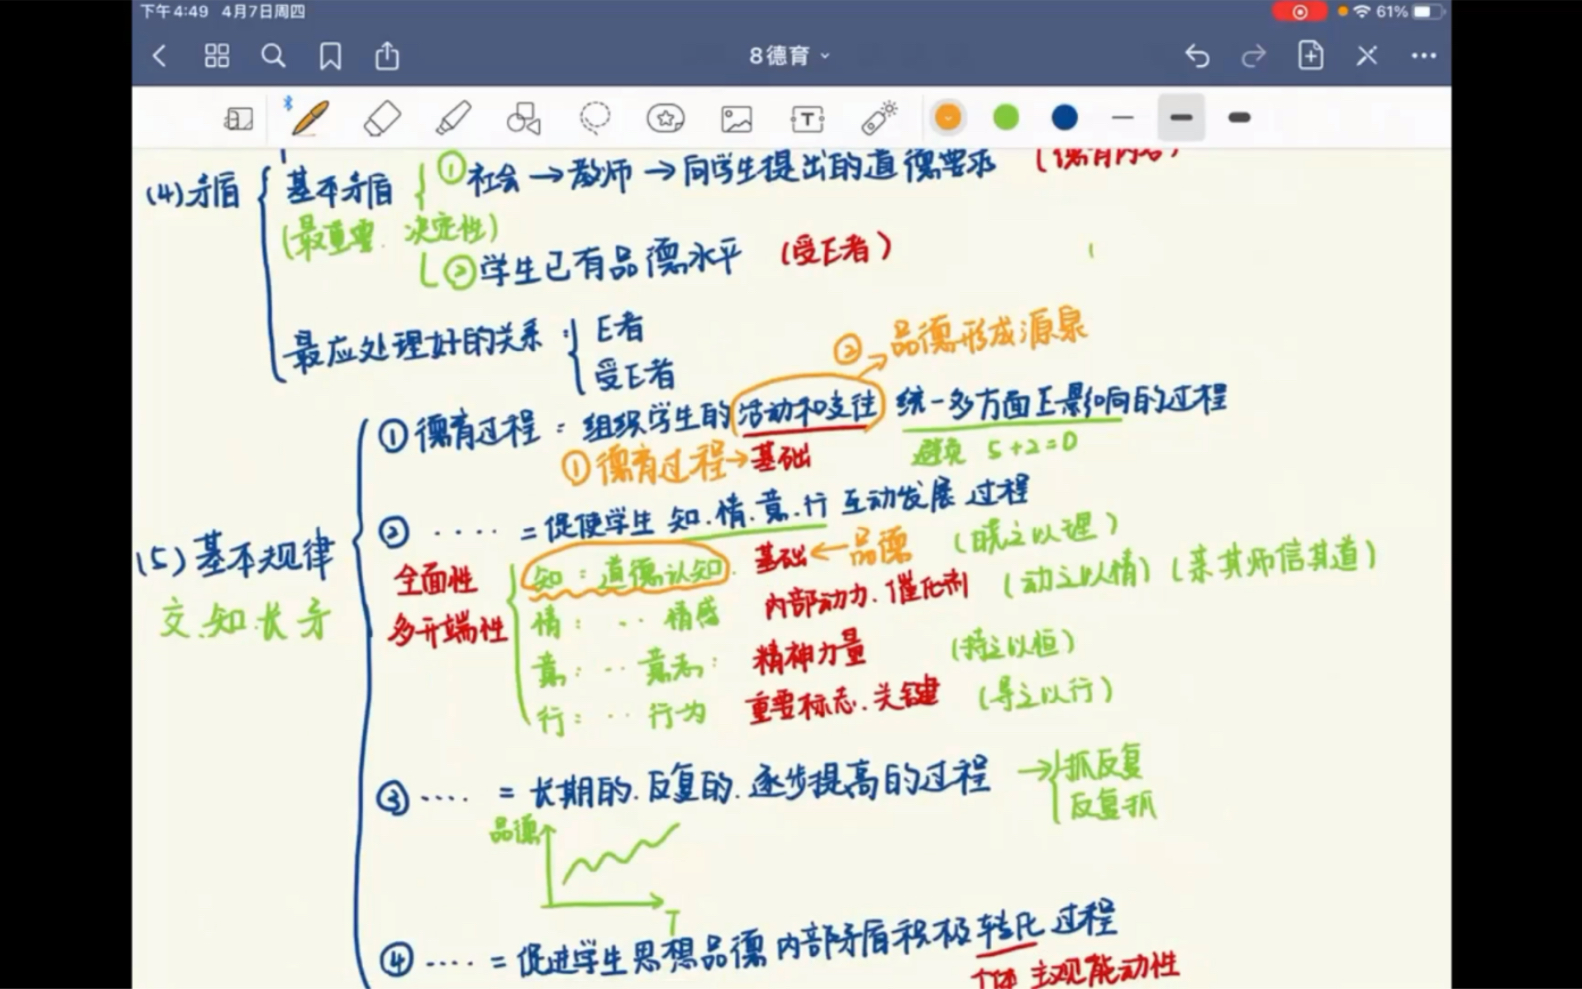 下午4:49 4月7日周四
61%
8德育
(4)矛盾
基本矛盾
①社会→教师→向学生提出的道德要求
(德育内容)
(最重要.决定性)
②学生已有品德水平 (受E者)
最应处理好的关系:
E者
受E者
② 品德形成源泉
①德育过程=组织学生的活动和交往 统一多方面E影响的过程
①德育过程→基础
避免 5+2=0
②····=促使学生知.情.意.行互动发展过程
(5)基本规律
交.知.长.矛
全面性
多开端性
知:道德认知. 基础←品德 (晓之以理)
情:··情感 内部动力.催化剂 (动之以情)(亲其师信其道)
意:··意志: 精神力量 (持之以恒)
行:··行为 重要标志.关键 (导之以行)
③····=长期的.反复的.逐步提高的过程→
抓反复
反复抓
品德
T
④····=促进学生思想品德内部矛盾积极转化过程
个体主观能动性